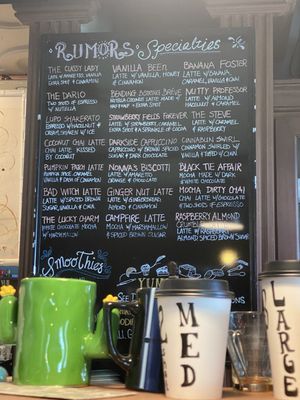 RUMORS Specialties
THE CUSSY LADY
LATTE W/ AMARETTO, VANILLA
IRISH SPICE & CINNAMON
THE DARIO
TWO SHOTS OF ESPRESSO
W/ NUTELLA
LUPO SHAKERATO
ESPRESSO W/ HAZELNUT
CREAM, SHAKEN W/ ICE
COCONUT CHAI LATTE
CHAI LATTE KISSED
BY COCONUT
PUMPKIN PATCH LATTE
PUMPKIN SPICE, CARAMEL
VANILLA & DASH OF CINNAMON
BAD WITCH LATTE
LATTE W/ SPICED BROWN
SUGAR, VANILLA & CHAI
THE LUCKY CHARM
WHITE CHOCOLATE MOCHA
W/ MARSHMALLOW
VANILLA BEEN
LATTE W/ VANILLA, HONEY
& CINNAMON
BENDING BODHI BREVE
NUTELLA COCONUT LATTE MADE W/
HALF & HALF
STRAWBERRY FIELDS FOREVER
LATTE W/ STRAWBERRY, CARAMEL
IRISH CREAM & A SPRINKLE OF COCOA
DARKSIDE CAPPUCCINO
CAPPUCCINO W/ BROWN SPICED
SUGAR & DARK CHOCOLATE
NONNA'S BISCOTTI
LATTE W/ AMARETTO
ORANGE & CHOCOLATE
GINGER NUT LATTE
LATTE W/ GINGER, HAZELNUT
& CARAMEL
CAMPFIRE LATTE
MOCHA W/ MARSHMALLOW
& SPICED BROWN SUGAR
BANANA FOSTER
LATTE W/ BANANA,
CARAMEL, VANILLA & CINN.
NUTTY PROFESSOR
LATTE W/ ALMOND
HAZELNUT & CARAMEL
THE STEVE
LATTE W/ CARAMEL
& RASPBERRY
CINNABUN SWIRL
CINNAMON SWIRLED W/
VANILLA LATTE W/ CARAMEL
BLACK TIE AFFAIR
MOCHA MADE W/ DARK
& WHITE CHOCOLATE
MOCHA DIRTY CHAI
CHAI LATTE W/ CHOCOLATE
& TWO SHOTS OF ESPRESSO
RASPBERRY ALMOND
CRUMBLE
LATTE W/ RASPBERRY
ALMOND, SPICED BROWN SUGAR
SMOOTHIES
YUM
SEE
MED
LARGE